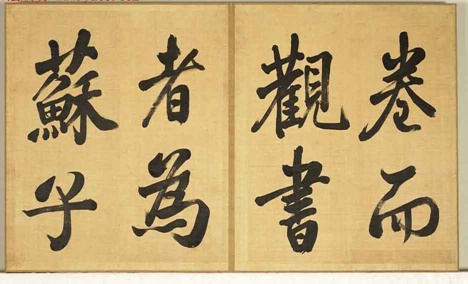 卷而
觀書
者為
蘇子